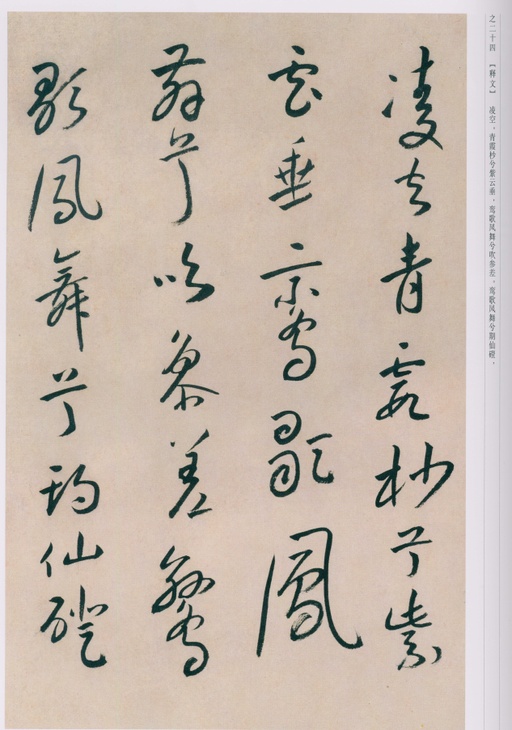 之二十四 【释文】 凌空，青霞杪兮紫云垂，鸾歌凤舞兮吹参差，鸾歌凤舞兮期仙磴，
凌空青霞杪兮紫
雲垂鸞歌鳳
舞兮吹參差鸞
歌鳳舞兮期仙磴